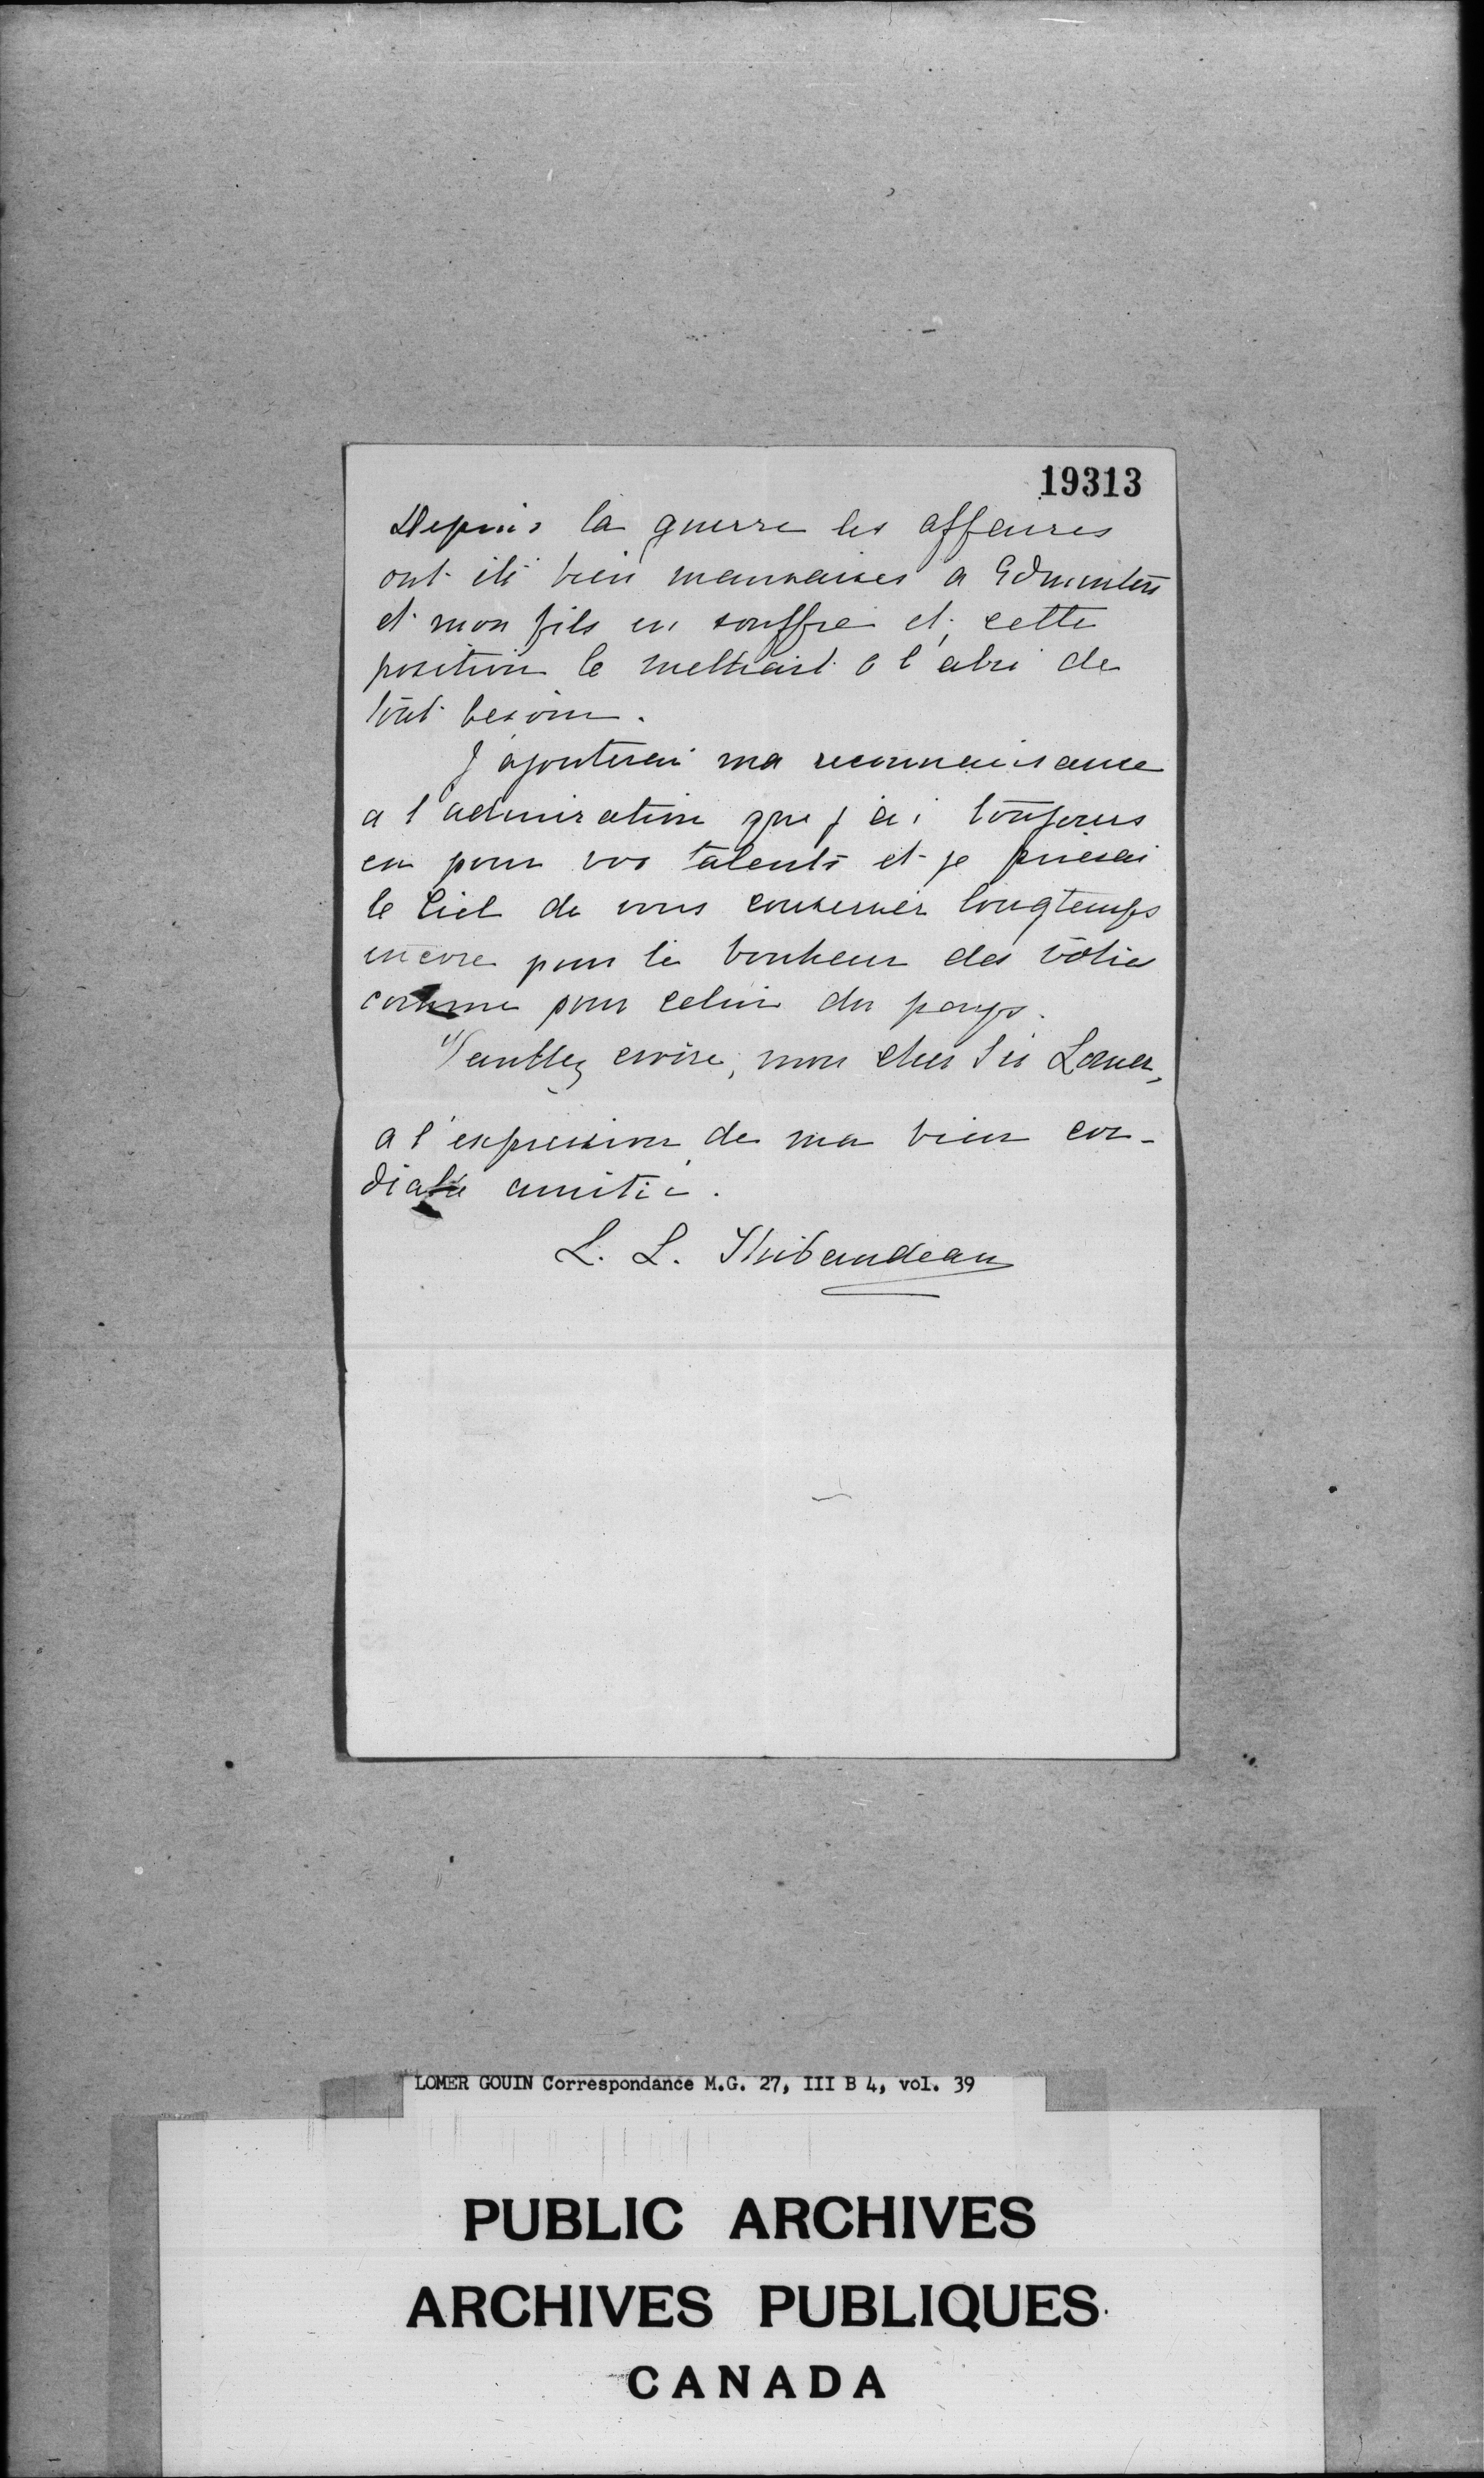 19313
Depuis la guerre les affaires
ont été bien mauvaises a Edmonton
et mon fils en souffre et, cette
position le mettrait a l'abri de
tout besoin.
J'ajouterai ma reconnaissance
a l'admiration que j'ai toujours
eu pour vos talents et je prierai
le Ciel de vous conserver longtemps
encore pour le bonheur des vôtres
comme pour celui du pays.
Veuillez croire, mon cher Sir Lomer,
a l'expression de ma bien cor-
diale amitié.
L. L. Thibaudeau
LOMER GOUIN Correspondance M.G. 27, III B 4, vol. 39
PUBLIC ARCHIVES
ARCHIVES PUBLIQUES
CANADA